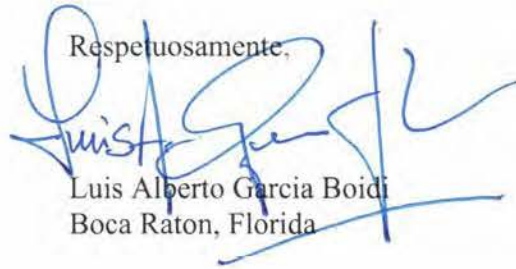 Respetuosamente,
Luis A. Garcia
Luis Alberto Garcia Boidi
Boca Raton, Florida